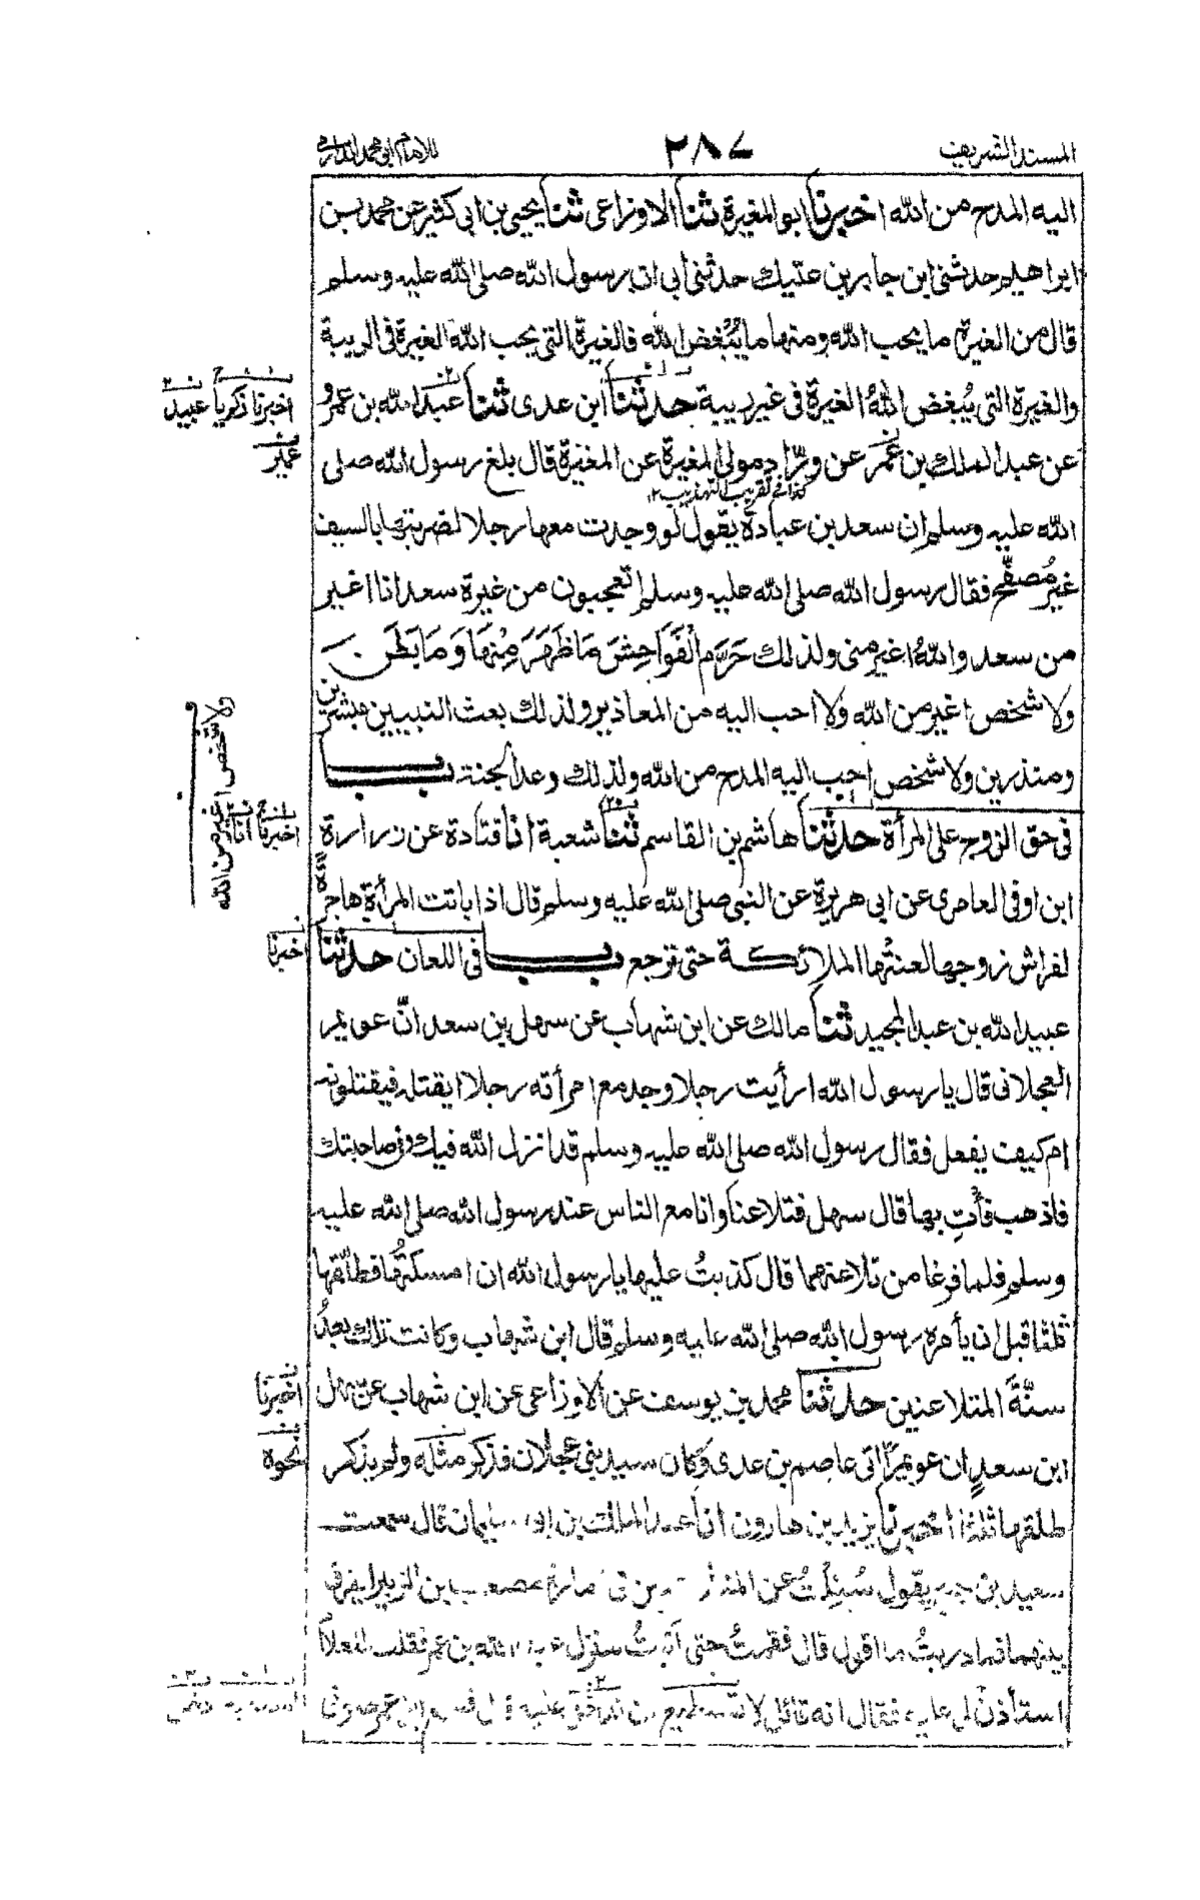 المسند الشريف
٢٨٧
للامام ابي محمد الدارمي
اليه المدح من الله اخبرنا ابو المغيرة ثنا الاوزاعى ثنا يحيى بن ابى كثير عن محمد بن
ابراهيم حدثنى ابن جابر بن عتيك حدثنى أبى ان رسول الله صلى الله عليه وسلم
قال من الغيرة ما يحب الله ومنها ما يُبْغض الله فالغيرة التى يحب الله الغيرة فى الريبة
والغيرة التى يُبغض اللهُ الغيرة فى غير ريبة حدثنا ابن عدى ثنا عبد الله بن عمرو
اخبرنا زكريا عبيد
عن عبد الملك بن عمر عن ورّاد مولى المغيرة عن المغيرة قال بلغ رسول الله صلى
عمير
كذا فى تقريب التهذيب ١٢
الله عليه وسلم ان سعد بن عبادة يقول لو وجدت معها رجلا لضربتها بالسيف
غير مُصفَّح فقال رسول الله صلى الله عليه وسلم اتعجبون من غيرة سعد انا اغير
من سعد واللهُ اغير منى ولذلك حَرَّم الْفَوَاحِشَ مَا ظَهَرَ مِنْهَا وَمَا بَطَنَ
ولا شخص اغير من الله ولا احب اليه من المعاذير ولذلك بعث النبيين مبشرين
ولا شخص اغير من الله
ومنذرين ولا شخص احب اليه المدح من الله ولذلك وعد الجنة بــاب
فى حق الزوج على المرأة حدثنا هاشم بن القاسم ثنا شعبة انا قتادة عن زرارة
اخبرنا انا
ابن اوفى العامرى عن ابى هريرة عن النبى صلى الله عليه وسلم قال اذا باتت المرأة هاجرة
لفراش زوجها لعنتْها الملائكة حتى ترجع بــاب فى اللعان حدثنا
اخبرنا
عبيد الله بن عبد المجيد ثنا مالك عن ابن شهاب عن سهل بن سعد انّ عويمر
العجلانى قال يا رسول الله ارأيت رجلا وجد مع امرأته رجلا ايقتله فيقتلونه
ام كيف يفعل فقال رسول الله صلى الله عليه وسلم قد انزل الله فيك وفى صاحبتك
فاذهب فأتِ بها قال سهل فتلاعنا وانا مع الناس عند رسول الله صلى الله عليه
وسلم فلما فرغا من تلاعنهما قال كذبتُ عليها يا رسول الله ان امسكتُها فطلّقها
ثلثا قبل ان يأمره رسول الله صلى الله عليه وسلم قال ابن شهاب وكانت تلك بعدُ
سنّةَ المتلاعنين حدثنا محمد بن يوسف عن الاوزاعى عن ابن شهاب عن سهل
اخبرنا
ابن سعدٍ ان عويمرًا اتى عاصم بن عدى وكان سيد بنى عجلان فذكر مثله ولم يذكر
نحوه
طلقها ثلثا اخبرنا يزيد بن هارون انا عبد الملك بن ابى سليمان قال سمعت
سعيد بن جبير يقول سُئِلْتُ عن مصعب بن الزبير ايفرق
بينهما فما دريتُ ما اقول قال فقمتُ حتى اتيتُ منزل عبد الله بن عمر فقلت للغلام
استأذن لى عليه فقال انه قائل لا تستطيع